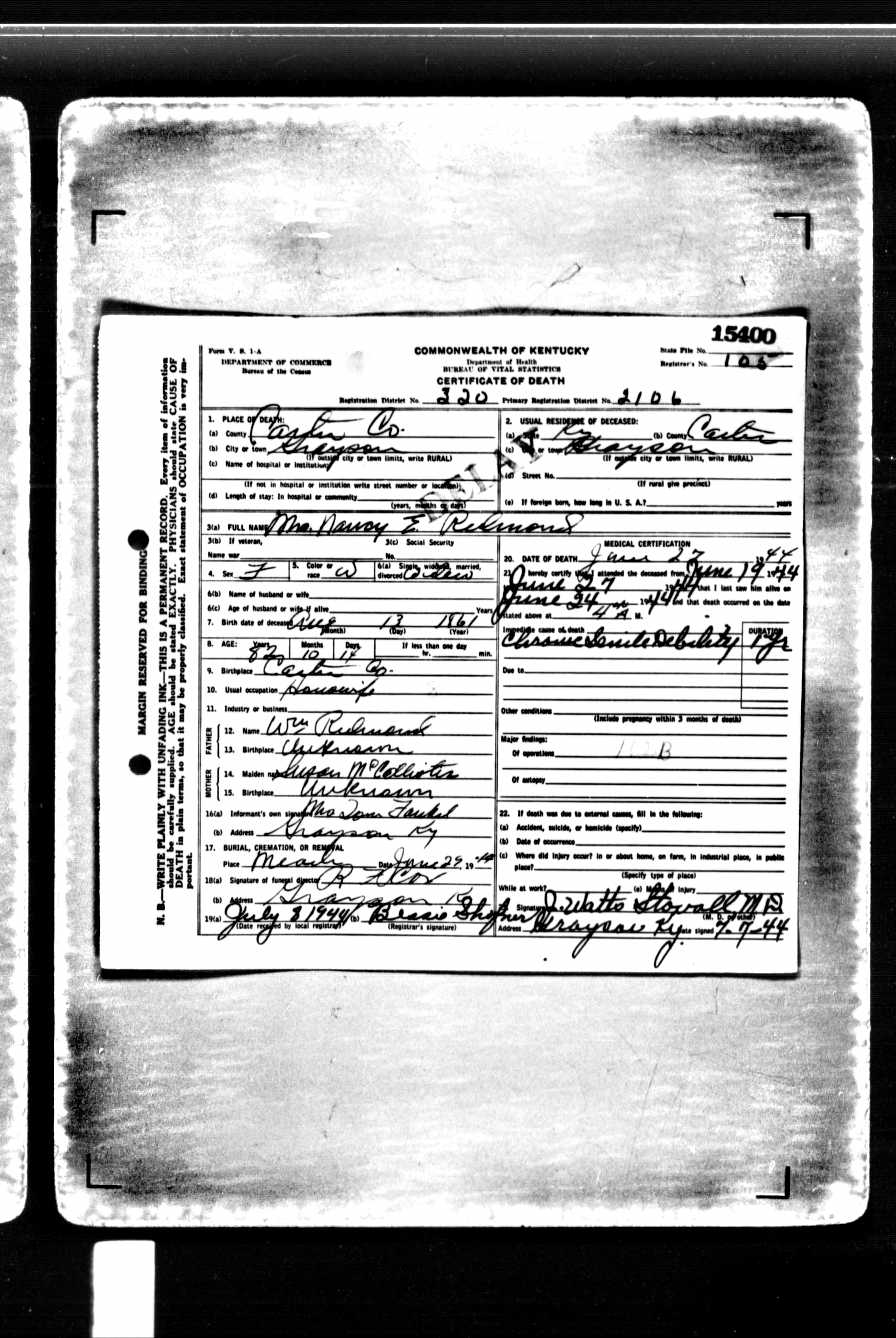 15400
Form V. S. 1-A
DEPARTMENT OF COMMERCE
Bureau of the Census
COMMONWEALTH OF KENTUCKY
Department of Health
BUREAU OF VITAL STATISTICS
CERTIFICATE OF DEATH
State File No.
Registrar's No. 105
Registration District No. 320 Primary Registration District No. 2106
DELAY
1. PLACE OF DEATH:
(a) County Carter Co.
(b) City or town Grayson
(If outside city or town limits, write RURAL)
(c) Name of hospital or institution:
(If not in hospital or institution write street number or location)
(d) Length of stay: In hospital or community
(years, months or days)
2. USUAL RESIDENCE OF DECEASED:
(a) State Ky (b) County Carter
(c) City or town Grayson
(If outside city or town limits, write RURAL)
(d) Street No.
(If rural give precinct)
(e) If foreign born, how long in U. S. A.? years
3(a) FULL NAME Mrs. Nancy E. Redmond
3(b) If veteran, 3(c) Social Security
Name war No.
4. Sex F 5. Color or race W 6(a) Single, widowed, married, divorced Widow
6(b) Name of husband or wife
6(c) Age of husband or wife if alive Years
7. Birth date of deceased Aug 13 1861
(Month) (Day) (Year)
8. AGE: Years Months Days If less than one day
82 10 14 hr. min.
9. Birthplace Carter Co.
10. Usual occupation Housewife
11. Industry or business
FATHER
12. Name Wm Redmond
13. Birthplace Unknown
MOTHER
14. Maiden name Susan
15. Birthplace Unknown
16(a) Informant's own signature Mrs Tom
(b) Address Grayson Ky
17. BURIAL, CREMATION, OR REMOVAL
Place Date June 29 1944
18(a) Signature of funeral director
(b) Address Grayson Ky
19(a) July 8 1944 (b) Bessie
(Date received by local registrar) (Registrar's signature)
MEDICAL CERTIFICATION
20. DATE OF DEATH June 27 1944
21. I hereby certify that I attended the deceased from June 19 1944
June 27 1944 that I last saw him alive on
June 24 1944 and that death occurred on the date
stated above at 4 A M.
Immediate cause of death DURATION
Chronic Senile Debility 1 yr
Due to
Other conditions
(Include pregnancy within 3 months of death)
Major findings:
Of operations 162B
Of autopsy
22. If death was due to external causes, fill in the following:
(a) Accident, suicide, or homicide (specify)
(b) Date of occurrence
(c) Where did injury occur? In or about home, on farm, in industrial place, in public
place?
(Specify type of place)
While at work? (e) Means of injury
Signature J. Watts Stovall M D
(M. D. or other)
Address Grayson Ky. Date signed 7-7-44
MARGIN RESERVED FOR BINDING
N. B.—WRITE PLAINLY WITH UNFADING INK—THIS IS A PERMANENT RECORD. Every item of information
should be carefully supplied. AGE should be stated EXACTLY. PHYSICIANS should state CAUSE OF
DEATH in plain terms, so that it may be properly classified. Exact statement of OCCUPATION is very im-
portant.